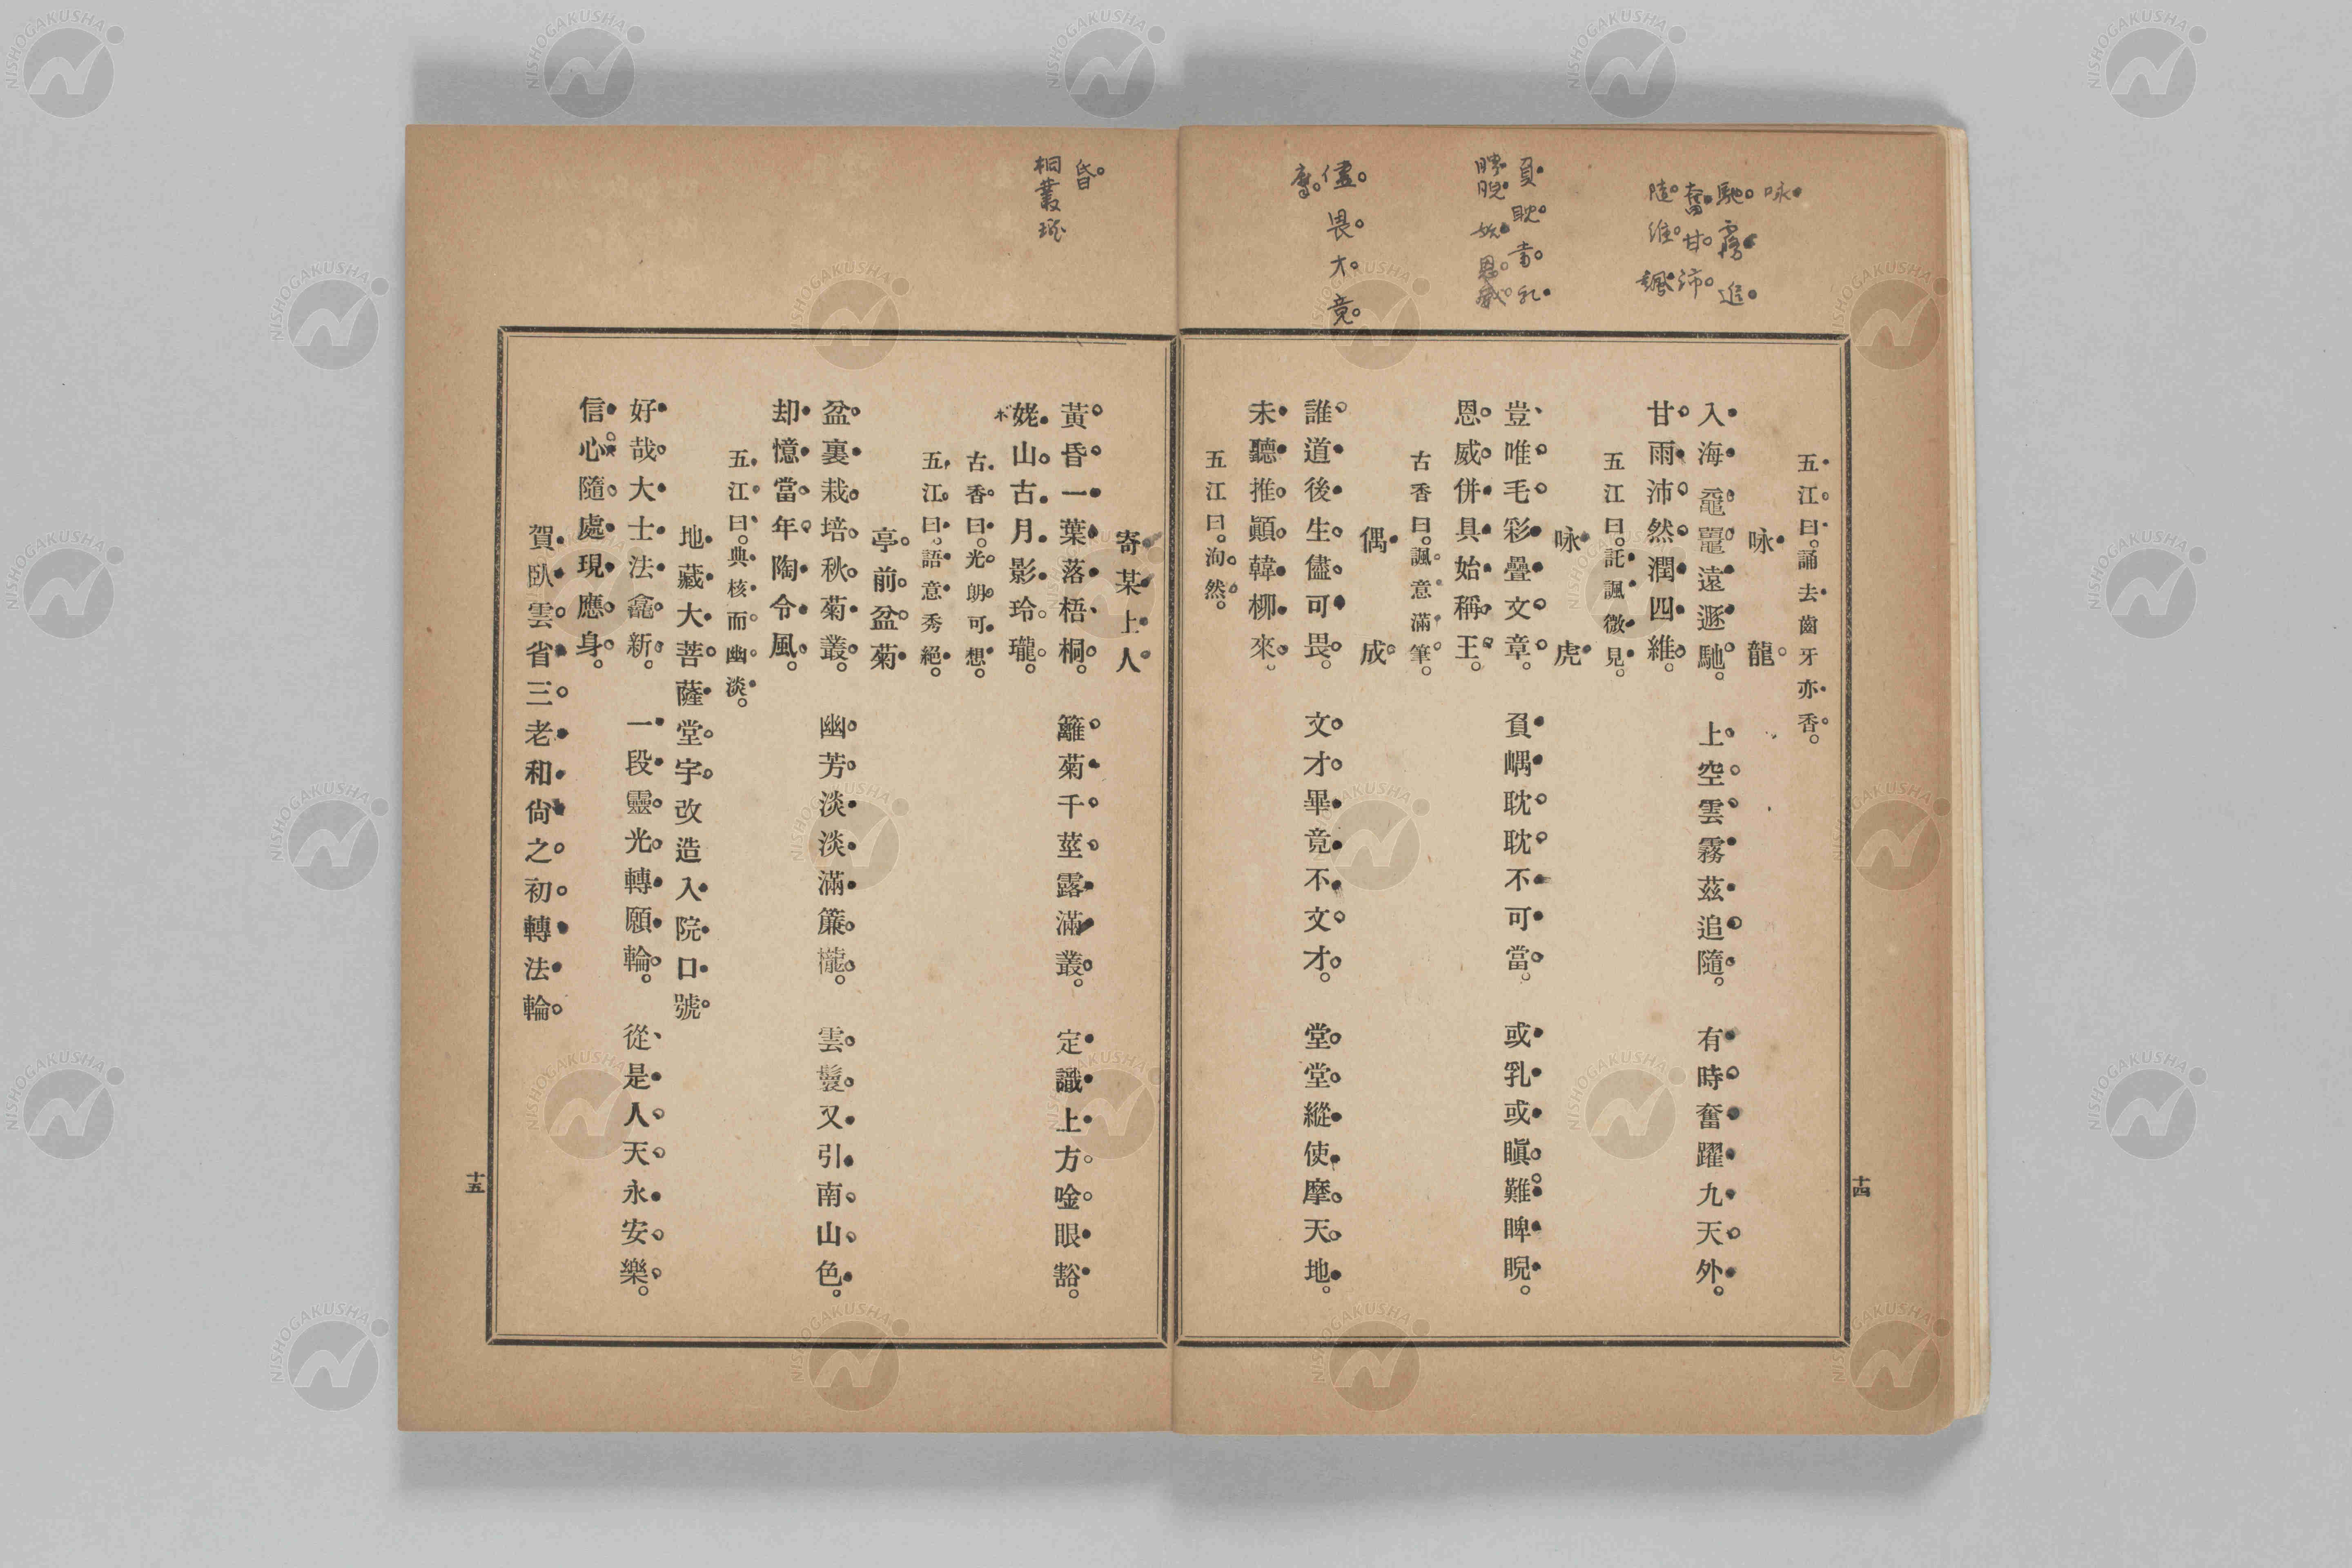 五江曰。誦去齒牙亦香。
咏龍
入海黿鼉遠遯馳。上空雲霧茲追隨。有時奮躍九天外。
甘雨沛然潤四維。
五江曰。託諷微見。
咏虎
豈唯毛彩疊文章。負嵎耽耽不可當。或乳或瞋難睥睨。
恩威併具始稱王。
古香曰。諷意滿筆。
偶成
誰道後生儘可畏。文才畢竟不文才。堂堂縱使摩天地。
未聽推顚韓柳來。
五江曰。洵然。
十四
寄某上人
黃昏一葉落梧桐。籬菊千莖露滿叢。定識上方唫眼豁。
姥山古月影玲瓏。
古香曰。光朗可想。
五江曰。語意秀絕。
亭前盆菊
盆裏栽培秋菊叢。幽芳淡淡滿簾櫳。雲鬟又引南山色。
却憶當年陶令風。
五江曰。典核而幽淡。
地藏大菩薩堂宇改造入院口號
好哉大士法龕新。一段靈光轉願輪。從是人天永安樂。
信心隨處現應身。
賀臥雲省三老和尙之初轉法輪
十五
咏
馳 霧 追
奮 甘 沛
隨 維 飄
負 耽 當 乳
睥睨 恩威
儘 畏 才 竟
摩
昏
桐叢瓏
NISHOGAKUSHA